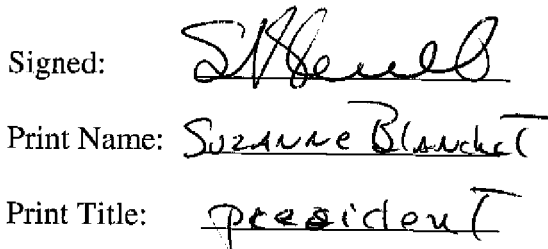 Signed:
Print Name: Suzanne Blanchet
Print Title: president